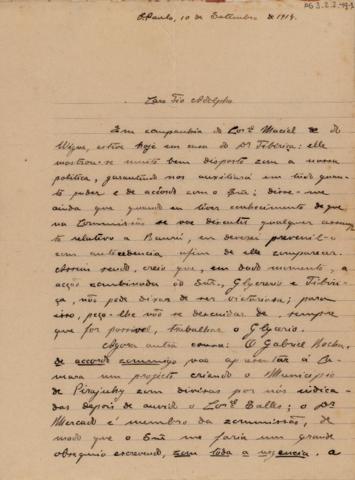 S. Paulo, 10 de Setembro de 1914.
Caro Tio Adolpho
Em companhia do Cor.el Maciel e do
estive hoje em casa do Dr. Tibiriçá: elle
mostrou-se muito bem disposto com a nossa
politica, garantindo nos auxiliará em tudo quan-
to puder e de accordo com o Snr.; disse-me
ainda que quando eu tiver conhecimento de que
na Commissão se vae discutir qualquer assump-
to relativo a Baurú, eu deverei prevenil-o
com antecedencia afim de elle comparecer.
Assim sendo, creio que, em dado momento, a
acção combinada do Snr., Glycerio e Tibiri-
çá, não póde deixar de ser victoriosa; para
isso, peço-lhe não se descuidar de, sempre
que for possivel, trabalhar o Glycerio.
Agora outra cousa: O Gabriel Rocha,
de accordo commigo vae apresentar á Ca-
mara um projecto criando o Municipio
de Pirajuhy com divisas por nós indica-
das depois de ouvido o Cor.el Salles; o Dr.
Mercado é membro da commissão, de
modo que o Snr. me faria um grande
obsequio escrevendo, com toda a urgencia, a